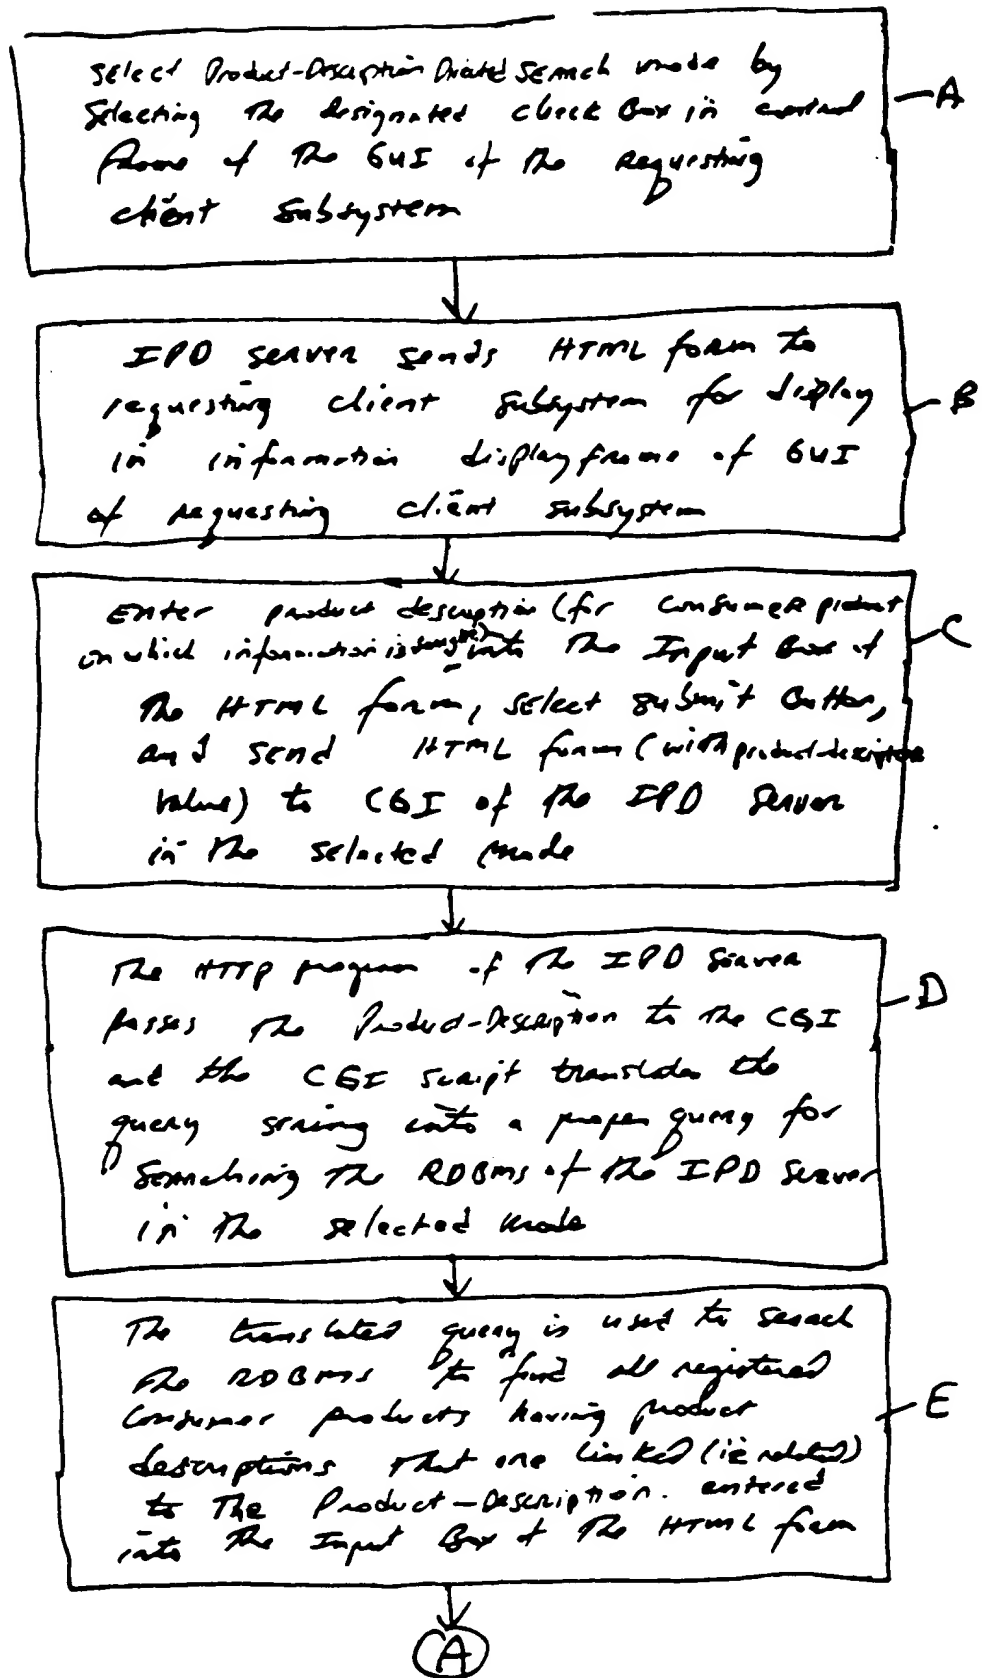 Select Product-Description Directed Search mode by
Selecting the designated check Box in control
frame of the GUI of the requesting
client subsystem
A
IPD server sends HTML form to
requesting client subsystem for display
in information display frame of GUI
of requesting client subsystem
B
Enter product description (for consumer product
on which information is sought) into the Input Box of
the HTML form, select submit Button,
and send HTML form (with product description
value) to CGI of the IPD Server
in the selected mode
C
The HTTP program of the IPD Server
passes the Product-Description to the CGI
and the CGI script translates the
query string into a proper query for
searching the RDBMS of the IPD Server
in the selected mode
D
The translated query is used to search
the RDBMS to find all registered
Consumer products having product
descriptions that are linked (ie related)
to the Product-Description. entered
into the Input Box of the HTML form
E
A